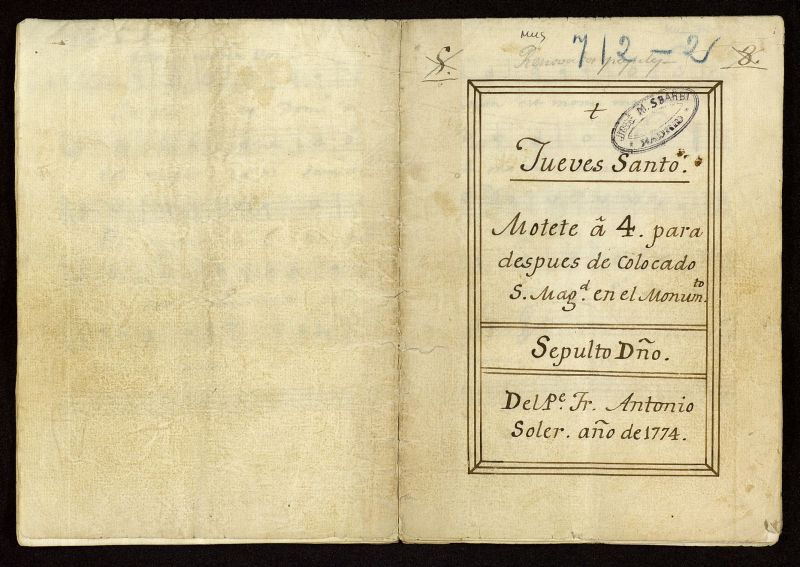 MUS 712-2
8. 8.
†
JOSÉ M. SBARBI
MADRID
Jueves Santo.
Motete â 4. para
despues de Colocado
S. Mag.ᵈ en el Monum.ᵗᵒ
Sepulto Dño.
Del P.ᵉ Fr. Antonio
Soler. año de 1774.